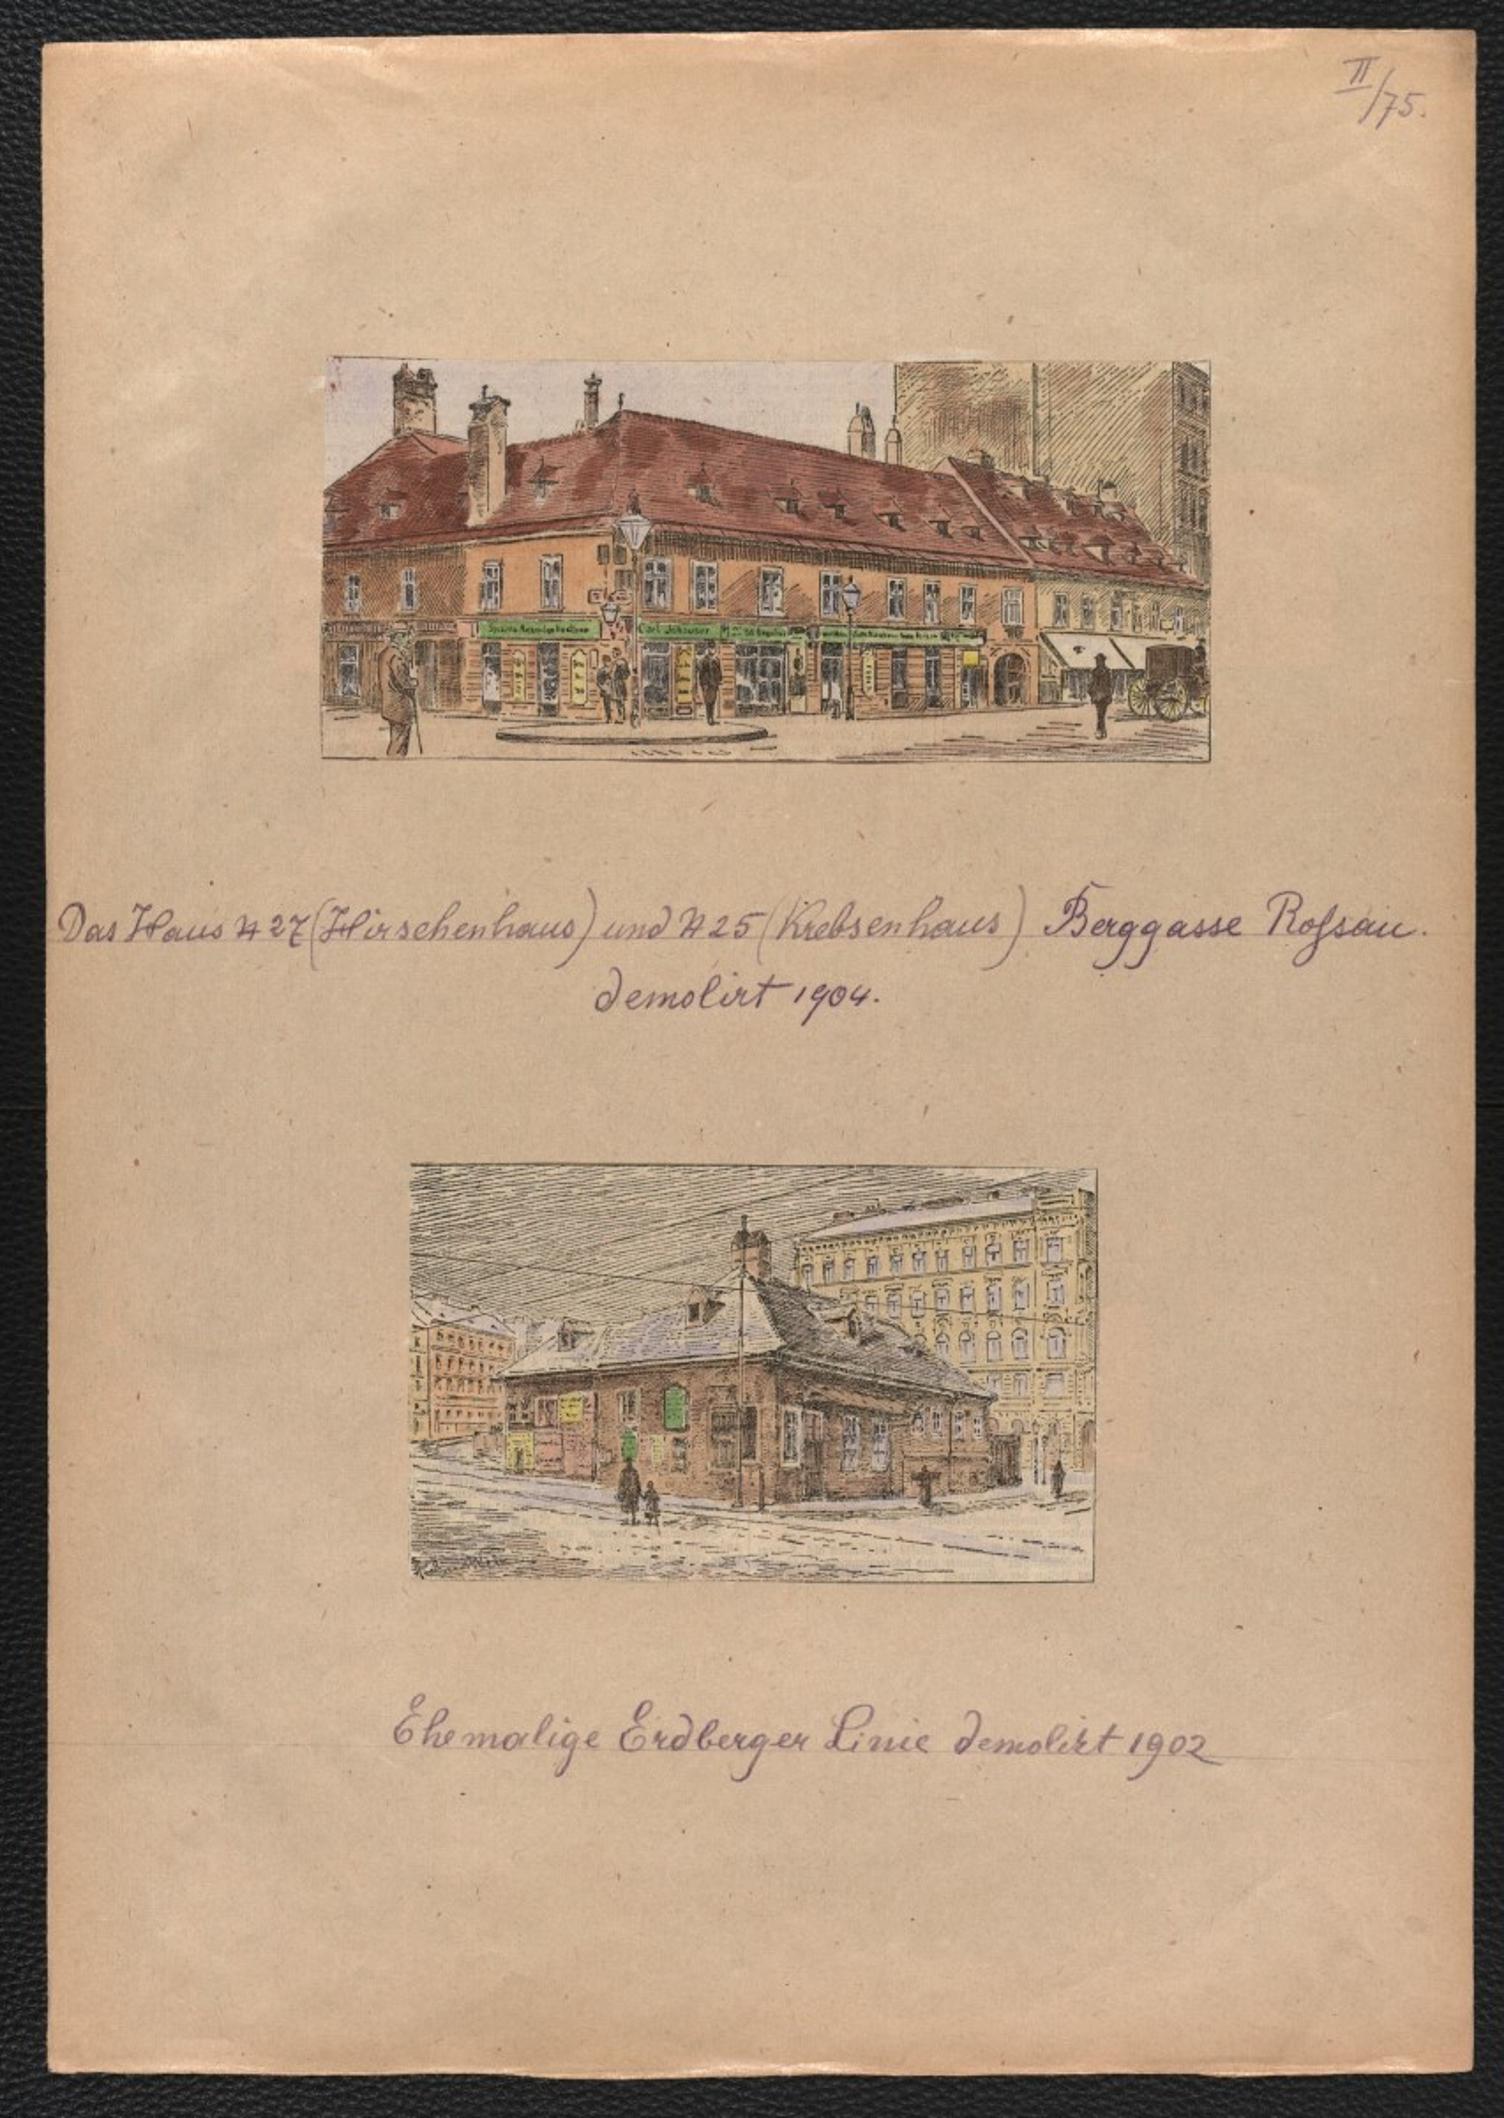 II/75.
Carl
Das Haus № 27 (Hirschenhaus) und № 25 (Krebsenhaus) Berggasse Roſsau.
demolirt 1904.
Ehemalige Erdberger Linie demolirt 1902